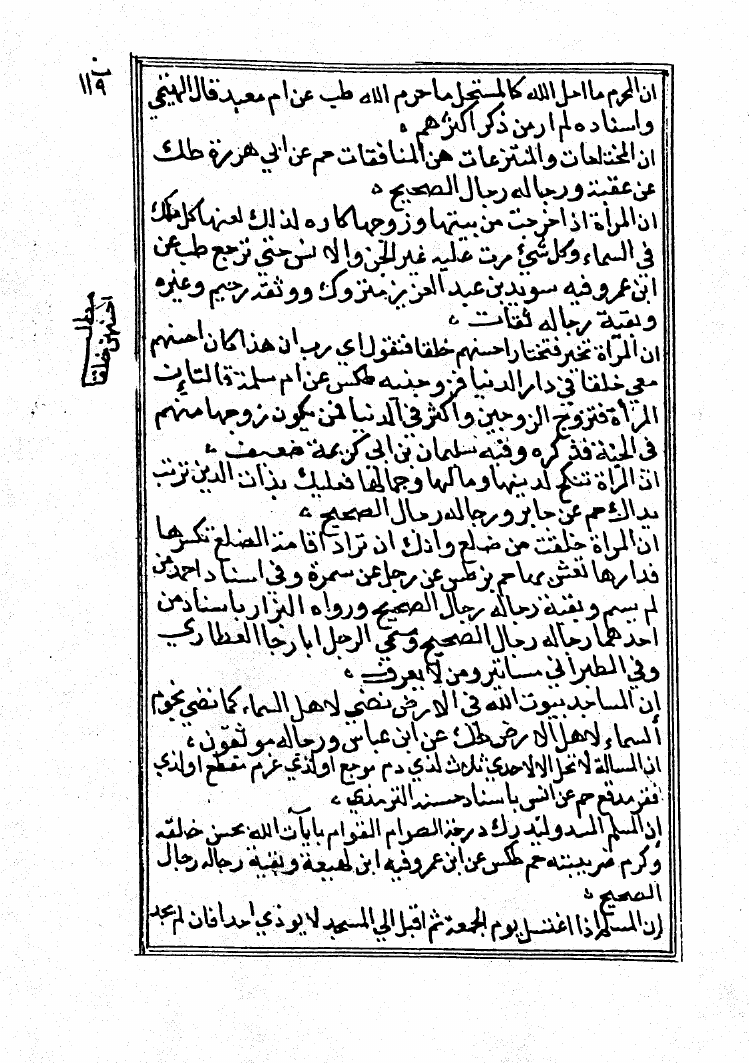 ب
١١٩
ان المحرم ما احل الله كالمستحل ما حرم الله طب عن ام معبد قال الهيثمي
واسناده لم ار من ذكر اكثرهم ه
ان المختلعات والمنتزعات هن المنافقات حم عن ابي هريرة طك
عن عقبة ورجاله رجال الصحيح ه
ان المرأة اذا خرجت من بيتها وزوجها كاره لذلك لعنها كل ملك
في السماء وكل شئ مرت عليه غير الجن والانس حتى ترجع طب عن
ابن عمر وفيه سويد بن عبد العزيز متروك ووثقه دحيم وغيره
وبقية رجاله ثقات ه
ان المرأة تخير فتختار احسنهم خلقا فتقول اي رب ان هذا كان احسنهم
معي خلقا في دار الدنيا فزوجنيه طكس عن ام سلمة قالت
المرأة تتزوج الزوجين واكثر في الدنيا لمن يكون زوجها منهم
في الجنة فذكره وفيه سليمان بن ابي كريمة ضعيف ه
ان المرأة تنكح لدينها ومالها وجمالها فعليك بذات الدين تربت
يداك حم عن جابر ورجاله رجال الصحيح ه
ان المرأة خلقت من ضلع وانك ان ترد اقامة الضلع تكسرها
فدارها تعش بها حم بز طس عن رجل عن سمرة وفي اسناد احمد من
لم يسم وبقية رجاله رجال الصحيح ورواه البزار باسناد من
احدهما رجاله رجال الصحيح وسمي الرجل ابا رجا العطاردي
وفي الطبراني مساتير ومن لا يعرف ه
ان المساجد بيوت الله في الارض تضي لاهل السماء كما تضي نجوم
السماء لاهل الارض طك عن ابن عباس ورجاله موثقون ه
ان المسالة لا تحل الا لاحدي ثلاث لذي دم موجع او لذي غرم مفظع او لذي
فقر مدقع حم عن انس باسناد حسنه الترمذي ه
ان المسلم المسدد ليدرك درجة الصوام القوام بايات الله بحسن خلقه
وكرم ضريبته حم طكس عن ابن عمرو وفيه ابن لهيعة وبقية رجاله رجال
الصحيح ه
ان المسلم اذا اغتسل يوم الجمعة ثم اقبل الي المسجد لا يوذي احدا فان لم يجد
مطلب
احسنهن خلقا